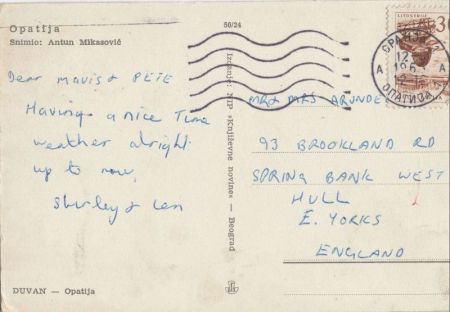 Opatija
Snimio: Antun Mikasović
50/24
Dear Mavis & PETE
Having a nice Time
weather alright
up to now,
Shirley & Len
DUVAN — Opatija
Izdanje: NIP »Književne novine« — Beograd
LITOSTROJ
30
OPATIJA 2
ОПАТИЈА 2
A
A
MR & MRS ARUNDE
93 BROOKLAND RD
SPRING BANK WEST
HULL
E. YORKS
ENGLAND